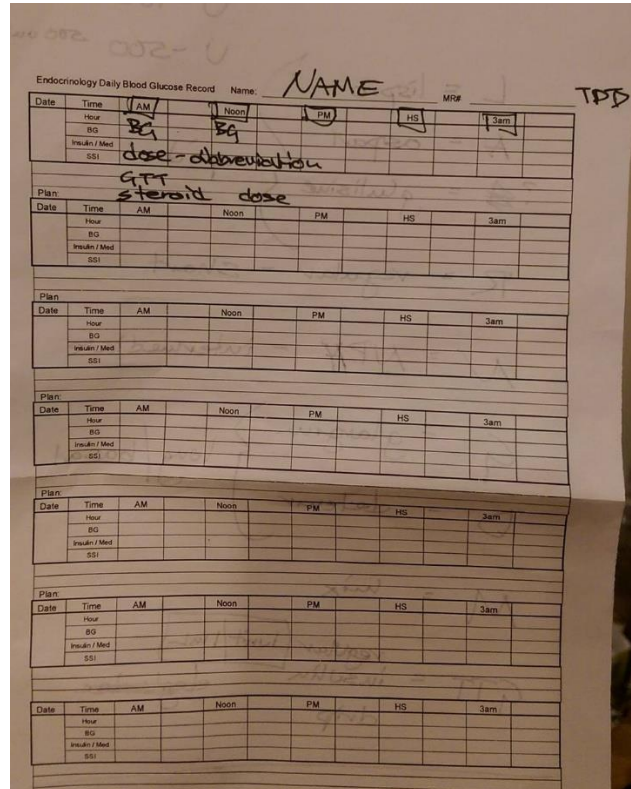 Endocrinology Daily Blood Glucose Record Name: NAME MR# TDD
Date Time AM Noon PM HS 3am
Hour BG BG
BG
Insulin / Med
SSI dose - abbreviation
GTT
Plan: steroid dose
Date Time AM Noon PM HS 3am
Hour
BG
Insulin / Med
SSI
Plan
Date Time AM Noon PM HS 3am
Hour
BG
Insulin / Med
SSI
Plan:
Date Time AM Noon PM HS 3am
Hour
BG
Insulin / Med
SSI
Plan:
Date Time AM Noon PM HS 3am
Hour
BG
Insulin / Med
SSI
Plan:
Date Time AM Noon PM HS 3am
Hour
BG
Insulin / Med
SSI
Date Time AM Noon PM HS 3am
Hour
BG
Insulin / Med
SSI